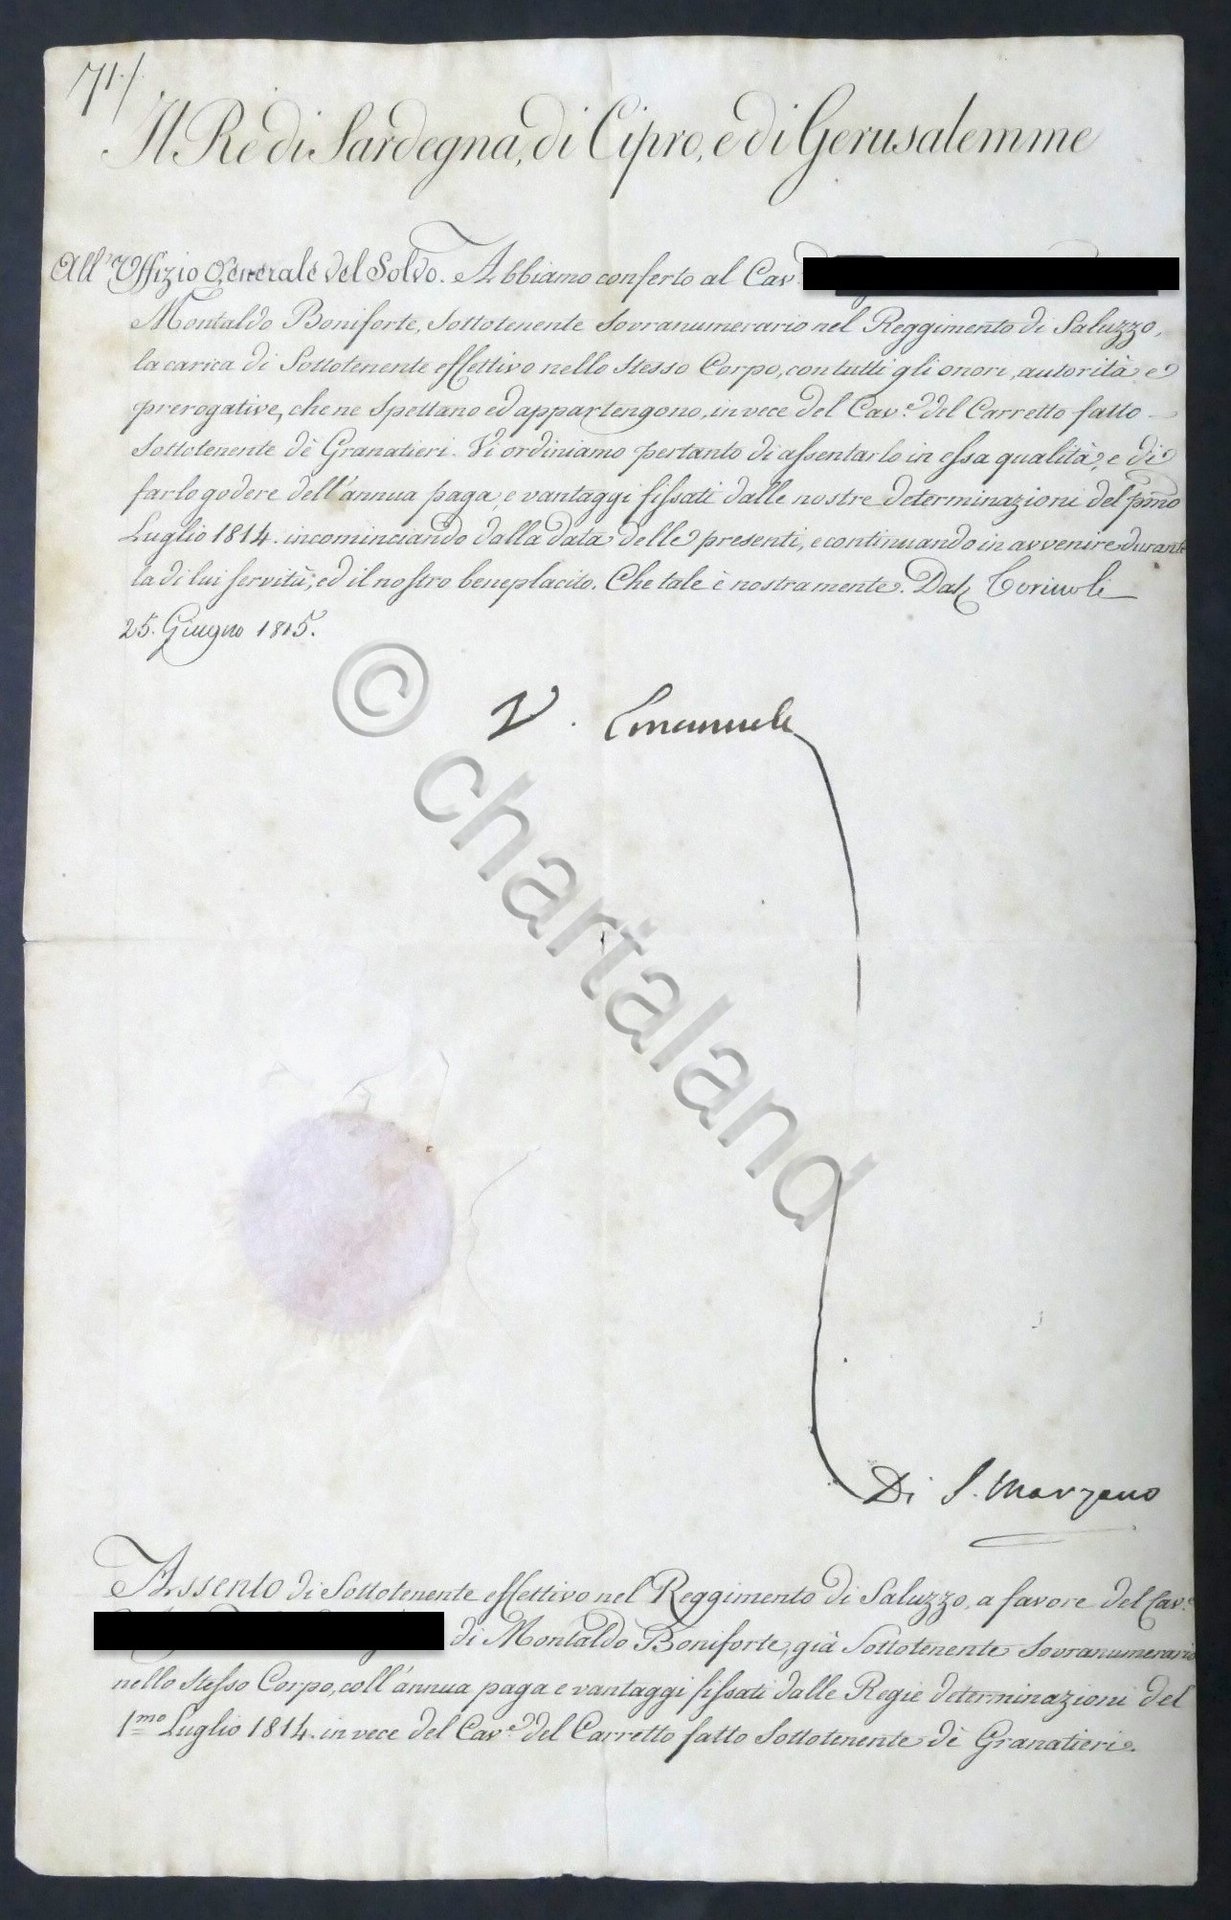 71/
Il Re di Sardegna, di Cipro, e di Gerusalemme
All' Uffizio Generale del Soldo. Abbiamo conferto al Cav.
Montaldo Boniforte, Sottotenente Sovranumerario nel Reggimento di Saluzzo,
la carica di Sottotenente effettivo nello stesso Corpo, con tutti gli onori, autorità e
prerogative, che ne spettano ed appartengono, in vece del Cav.e del Carretto fatto
Sottotenente dè Granatieri. Vi ordiniamo pertanto di assentarlo in essa qualità, e di
farlo godere dell'annua paga, e vantaggi fissati dalle nostre determinazioni del pmo
Luglio 1814. incominciando dalla data delle presenti, e continuando in avvenire durante
la di lui servitù, ed il nostro beneplacito. Che tale è nostra mente. Dat. Torino li
25. Giugno 1815.
V. Emanuele
© chartaland
Di S. Marzano
Assento di Sottotenente effettivo nel Reggimento di Saluzzo, a favore del Cav.e
di Montaldo Boniforte, già Sottotenente Sovranumerario
nello stesso Corpo, coll'annua paga e vantaggi fissati dalle Regie determinazioni del
1.mo Luglio 1814. in vece del Cav.e del Carretto fatto Sottotenente dè Granatieri.